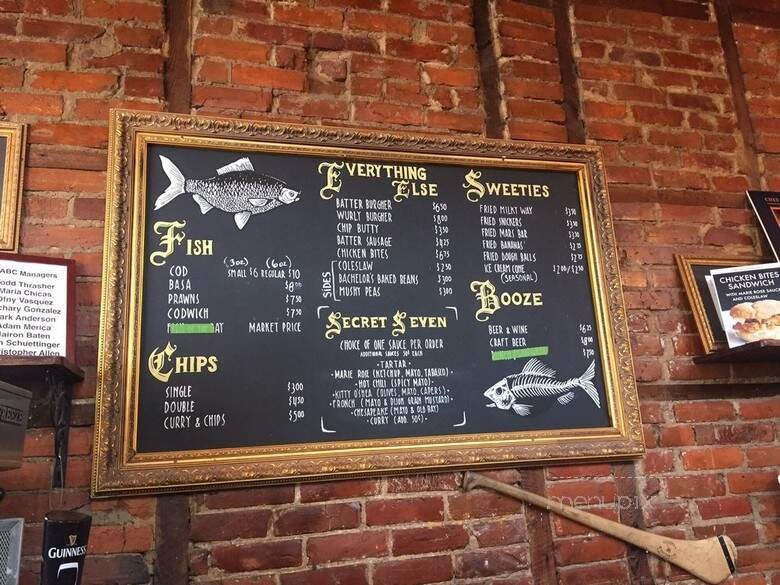 ABC Managers
Todd Thrasher
Maria Chicas
Zachary Gonzalez
Mark Anderson
Adam Merica
Nairon Baten
Schuettinger
Christopher Allen
FISH
(3oz) (6oz)
COD SMALL $6 REGULAR $10
BASA $8
PRAWNS $7.50
CODWICH $7.50
DAY MARKET PRICE
CHIPS
SINGLE $3.00
DOUBLE $4.50
CURRY & CHIPS $5.00
EVERYTHING
ELSE
BATTER BURGHER $6.50
WURLY BURGHER $8.00
CHIP BUTTY $3.50
BATTER SAUSAGE $4.25
CHICKEN BITES $6.75
SIDES
COLESLAW $2.50
BACHELOR'S BAKED BEANS $3.00
MUSHY PEAS $3.00
SECRET SEVEN
CHOICE OF ONE SAUCE PER ORDER
ADDITIONAL SAUCES 50¢ EACH
-TARTAR-
-MARIE ROSE (KETCHUP, MAYO, TABASCO)-
-HOT CHILI (SPICY MAYO)-
-KITTY O'SHEA (OLIVES, MAYO, CAPERS)-
-FRONCH (MAYO & DIJON GRAIN MUSTARD)-
-CHESAPEAKE (MAYO & OLD BAY)-
-CURRY (ADD. 50¢)-
SWEETIES
FRIED MILKY WAY $3.50
FRIED SNICKERS $3.50
FRIED MARS BAR $3.50
FRIED BANANAS
FRIED DOUGH BALLS
ICE CREAM CONE
(SEASONAL)
BOOZE
BEER & WINE $6.25
CRAFT BEER $8.00
$7.50
CHICKEN BITES
SANDWICH
WITH MARIE ROSE SAUCE
AND COLESLAW
GUINNESS
menupix